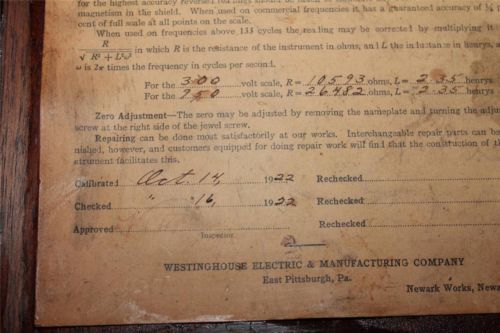 for the highest accuracy reversed readings should be
magnetism in the shield. When used on commercial frequencies it has a guaranteed accuracy of
cent of full scale at all points on the scale.
When used on frequencies above 133 cycles the reading may be corrected by multiplying it
R
√ R² + L²ω² in which R is the resistance of the instrument in ohms, and L the inductance in henrys,
ω is 2π times the frequency in cycles per second.
For the 300 volt scale, R = 10593 ohms, L = 2.35 henrys
For the 750 volt scale, R = 26482 ohms, L = 2.35 henrys
Zero Adjustment—The zero may be adjusted by removing the nameplate and turning the adjust
screw at the right side of the jewel screw.
Repairing can be done most satisfactorily at our works. Interchangeable repair parts can be
nished, however, and customers equipped for doing repair work will find that the construction of th
strument facilitates this.
Calibrated Oct. 14, 1922 Rechecked
Checked " 16, 1922 Rechecked
Approved Rechecked
Inspector.
2
WESTINGHOUSE ELECTRIC & MANUFACTURING COMPANY
East Pittsburgh, Pa.
Newark Works, Newa